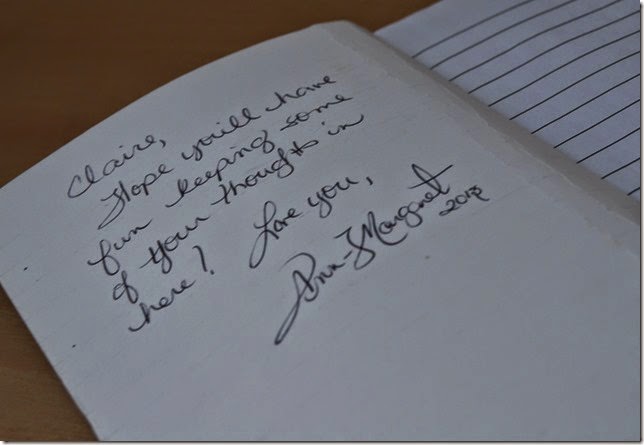 Claire,
Hope you'll have
fun keeping some
of your thoughts in
here! Love you,
Ann-Margret